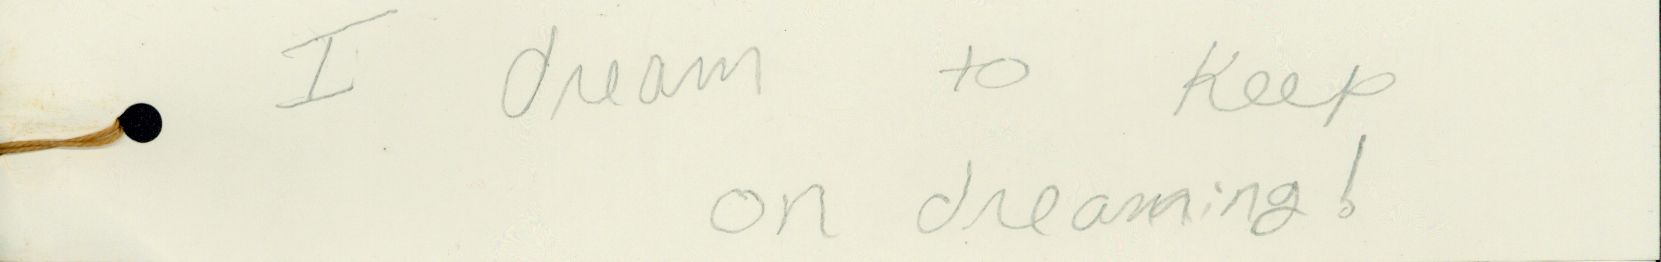 I dream to keep
on dreaming!